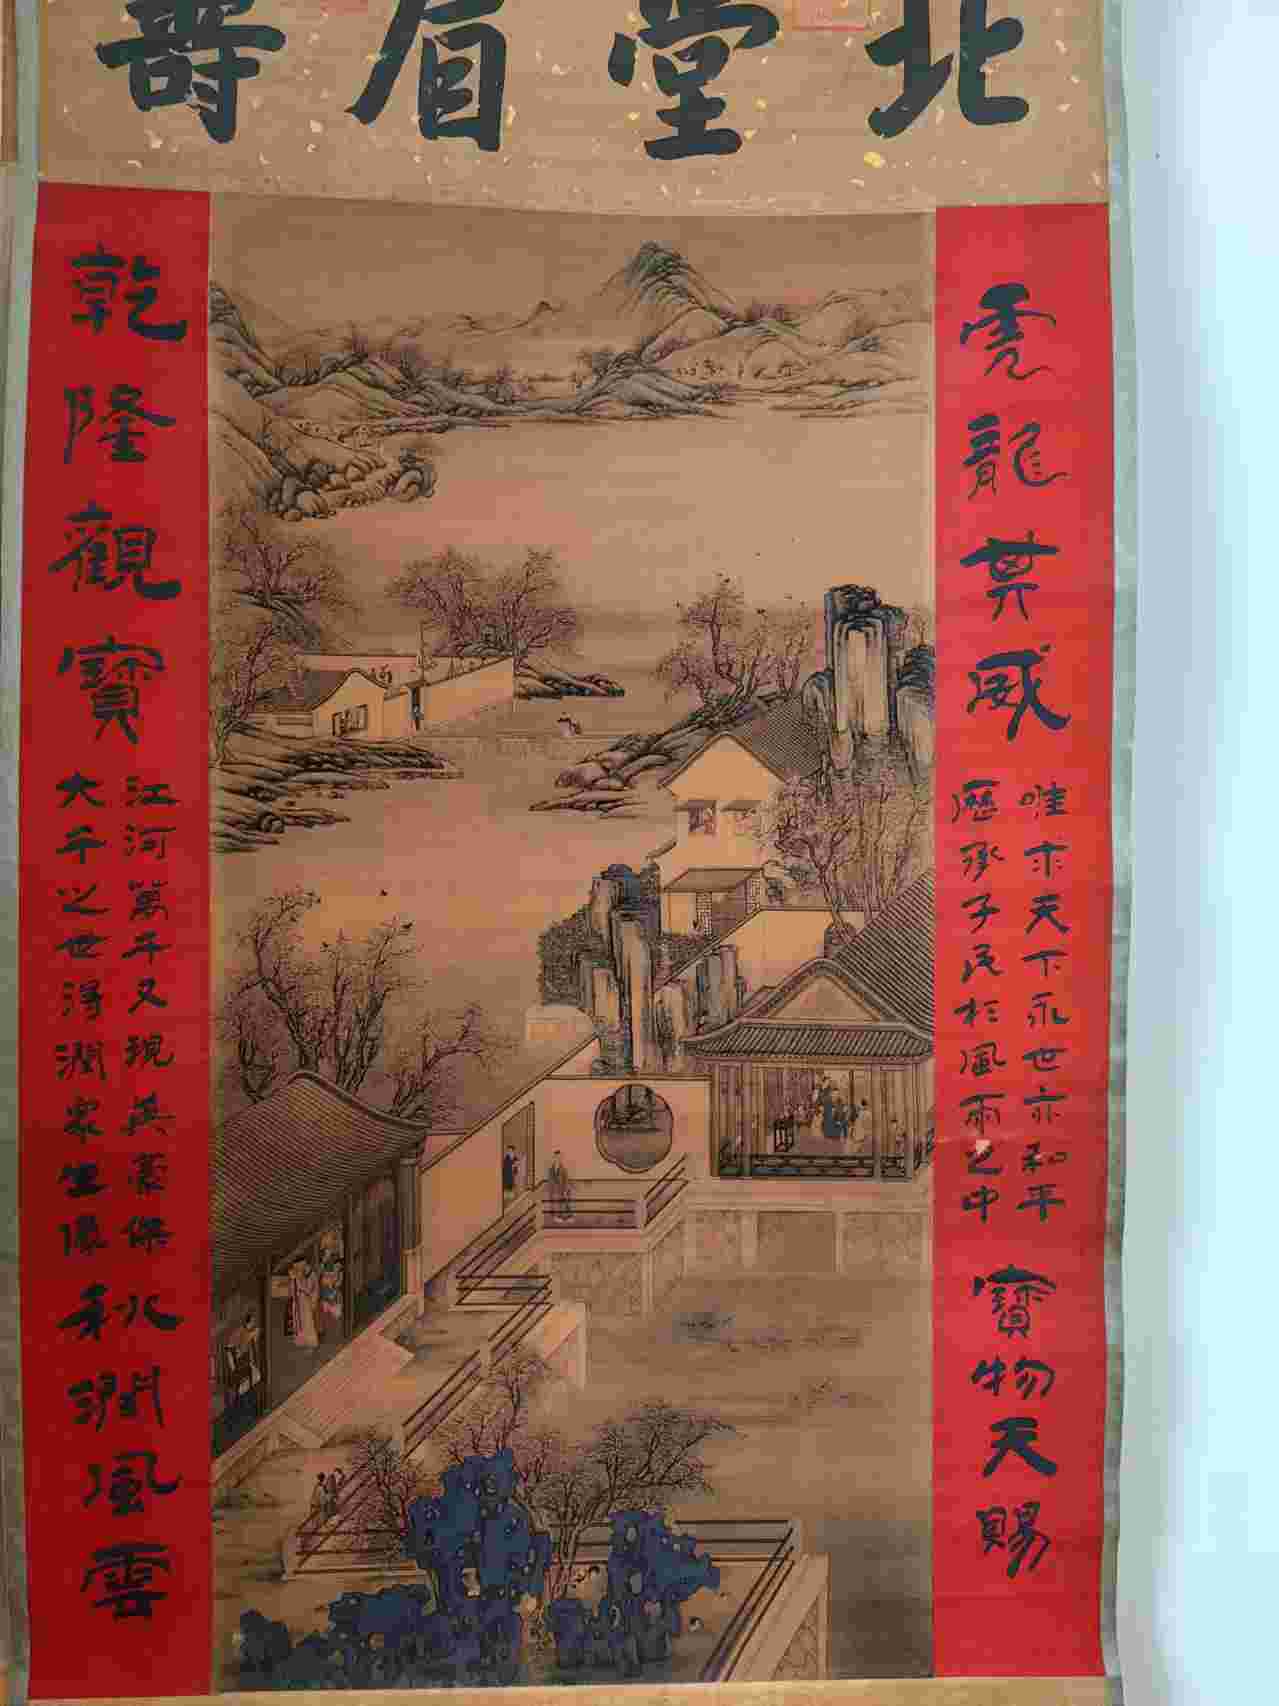 北堂眉壽
虎龍其威
唯求天下永世亦和平
歷承子民於風雨之中
寶物天賜
乾隆觀寶
江河萬千又現英豪傑
大千之世得潤眾生像
秋潤風雲